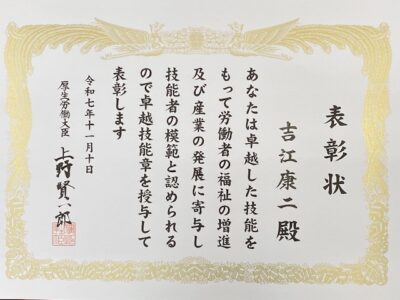 表彰状
吉江康二殿
あなたは卓越した技能を
もって労働者の福祉の増進
及び産業の発展に寄与し
技能者の模範と認められる
ので卓越技能章を授与して
表彰します
令和七年十一月十日
厚生労働大臣 上野賢一郎